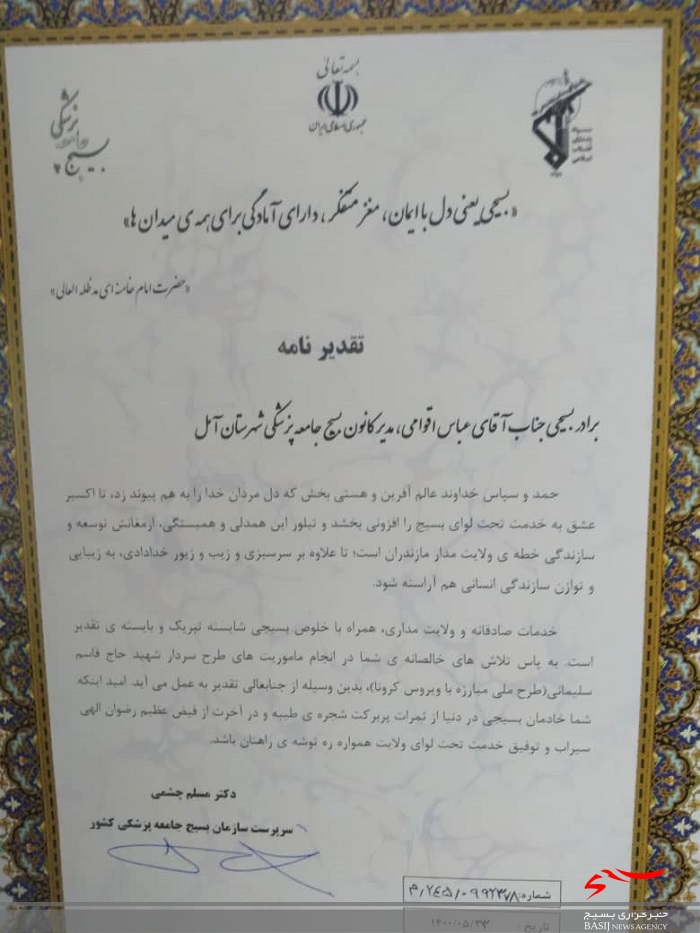 بسمه تعالی
جمهوری اسلامی ایران
بسیج جامعه پزشکی
«بسیجی یعنی دل با ایمان، مغز متفکر، دارای آمادگی برای همه ی میدان ها»
«حضرت امام خامنه ای مدظله العالی»
تقدیر نامه
برادر بسیجی جناب آقای عباس اقوامی، مدیر کانون بسیج جامعه پزشکی شهرستان آمل
حمد و سپاس خداوند عالم آفرین و هستی بخش که دل مردان خدا را به هم پیوند زد، تا اکسیر
عشق به خدمت تحت لوای بسیج را افزونی بخشد و تبلور این همدلی و همبستگی، ارمغانش توسعه و
سازندگی خطه ی ولایت مدار مازندران است؛ تا علاوه بر سرسبزی و زیب و زیور خدادادی، به زیبایی
و توازن سازندگی انسانی هم آراسته شود.
خدمات صادقانه و ولایت مداری، همراه با خلوص بسیجی شایسته تبریک و بایسته ی تقدیر
است. به پاس تلاش های خالصانه ی شما در انجام ماموریت های طرح سردار شهید حاج قاسم
سلیمانی(طرح ملی مبارزه با ویروس کرونا)، بدین وسیله از جنابعالی تقدیر به عمل می آید. امید اینکه
شما خادمان بسیجی در دنیا از ثمرات پربرکت شجره ی طیبه و در آخرت از فیض عظیم رضوان الهی
سیراب و توفیق خدمت تحت لوای ولایت همواره ره توشه ی راهتان باشد.
دکتر مسلم چشمی
سرپرست سازمان بسیج جامعه پزشکی کشور
شماره: ۹۹۲۳۷۸/۲۴۵/۰/م
تاریخ: ۱۴۰۰/۰۵/۲۳
بسیج
خبرگزاری بسیج
BASIJ NEWS AGENCY